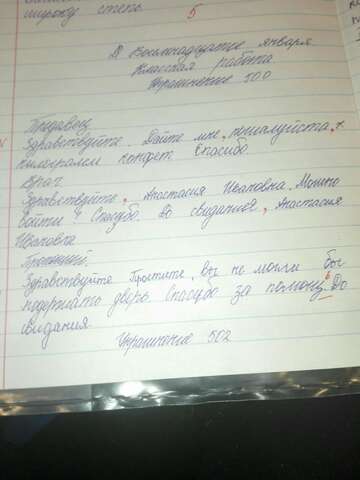 широку степь
5
Восемнадцатое января
Классная работа
Упражнение 500
Продавец
Здравствуйте. Дайте мне, пожалуйста,
килограмм конфет Спасибо
Врач
Здравствуйте, Анастасия Ивановна. Можно
войти? Спасибо. До свидания, Анастасия
Ивановна
Здравствуйте Простите, вы не могли бы
подержать дверь Спасибо за помощь. До
свидания
Упражнение 502